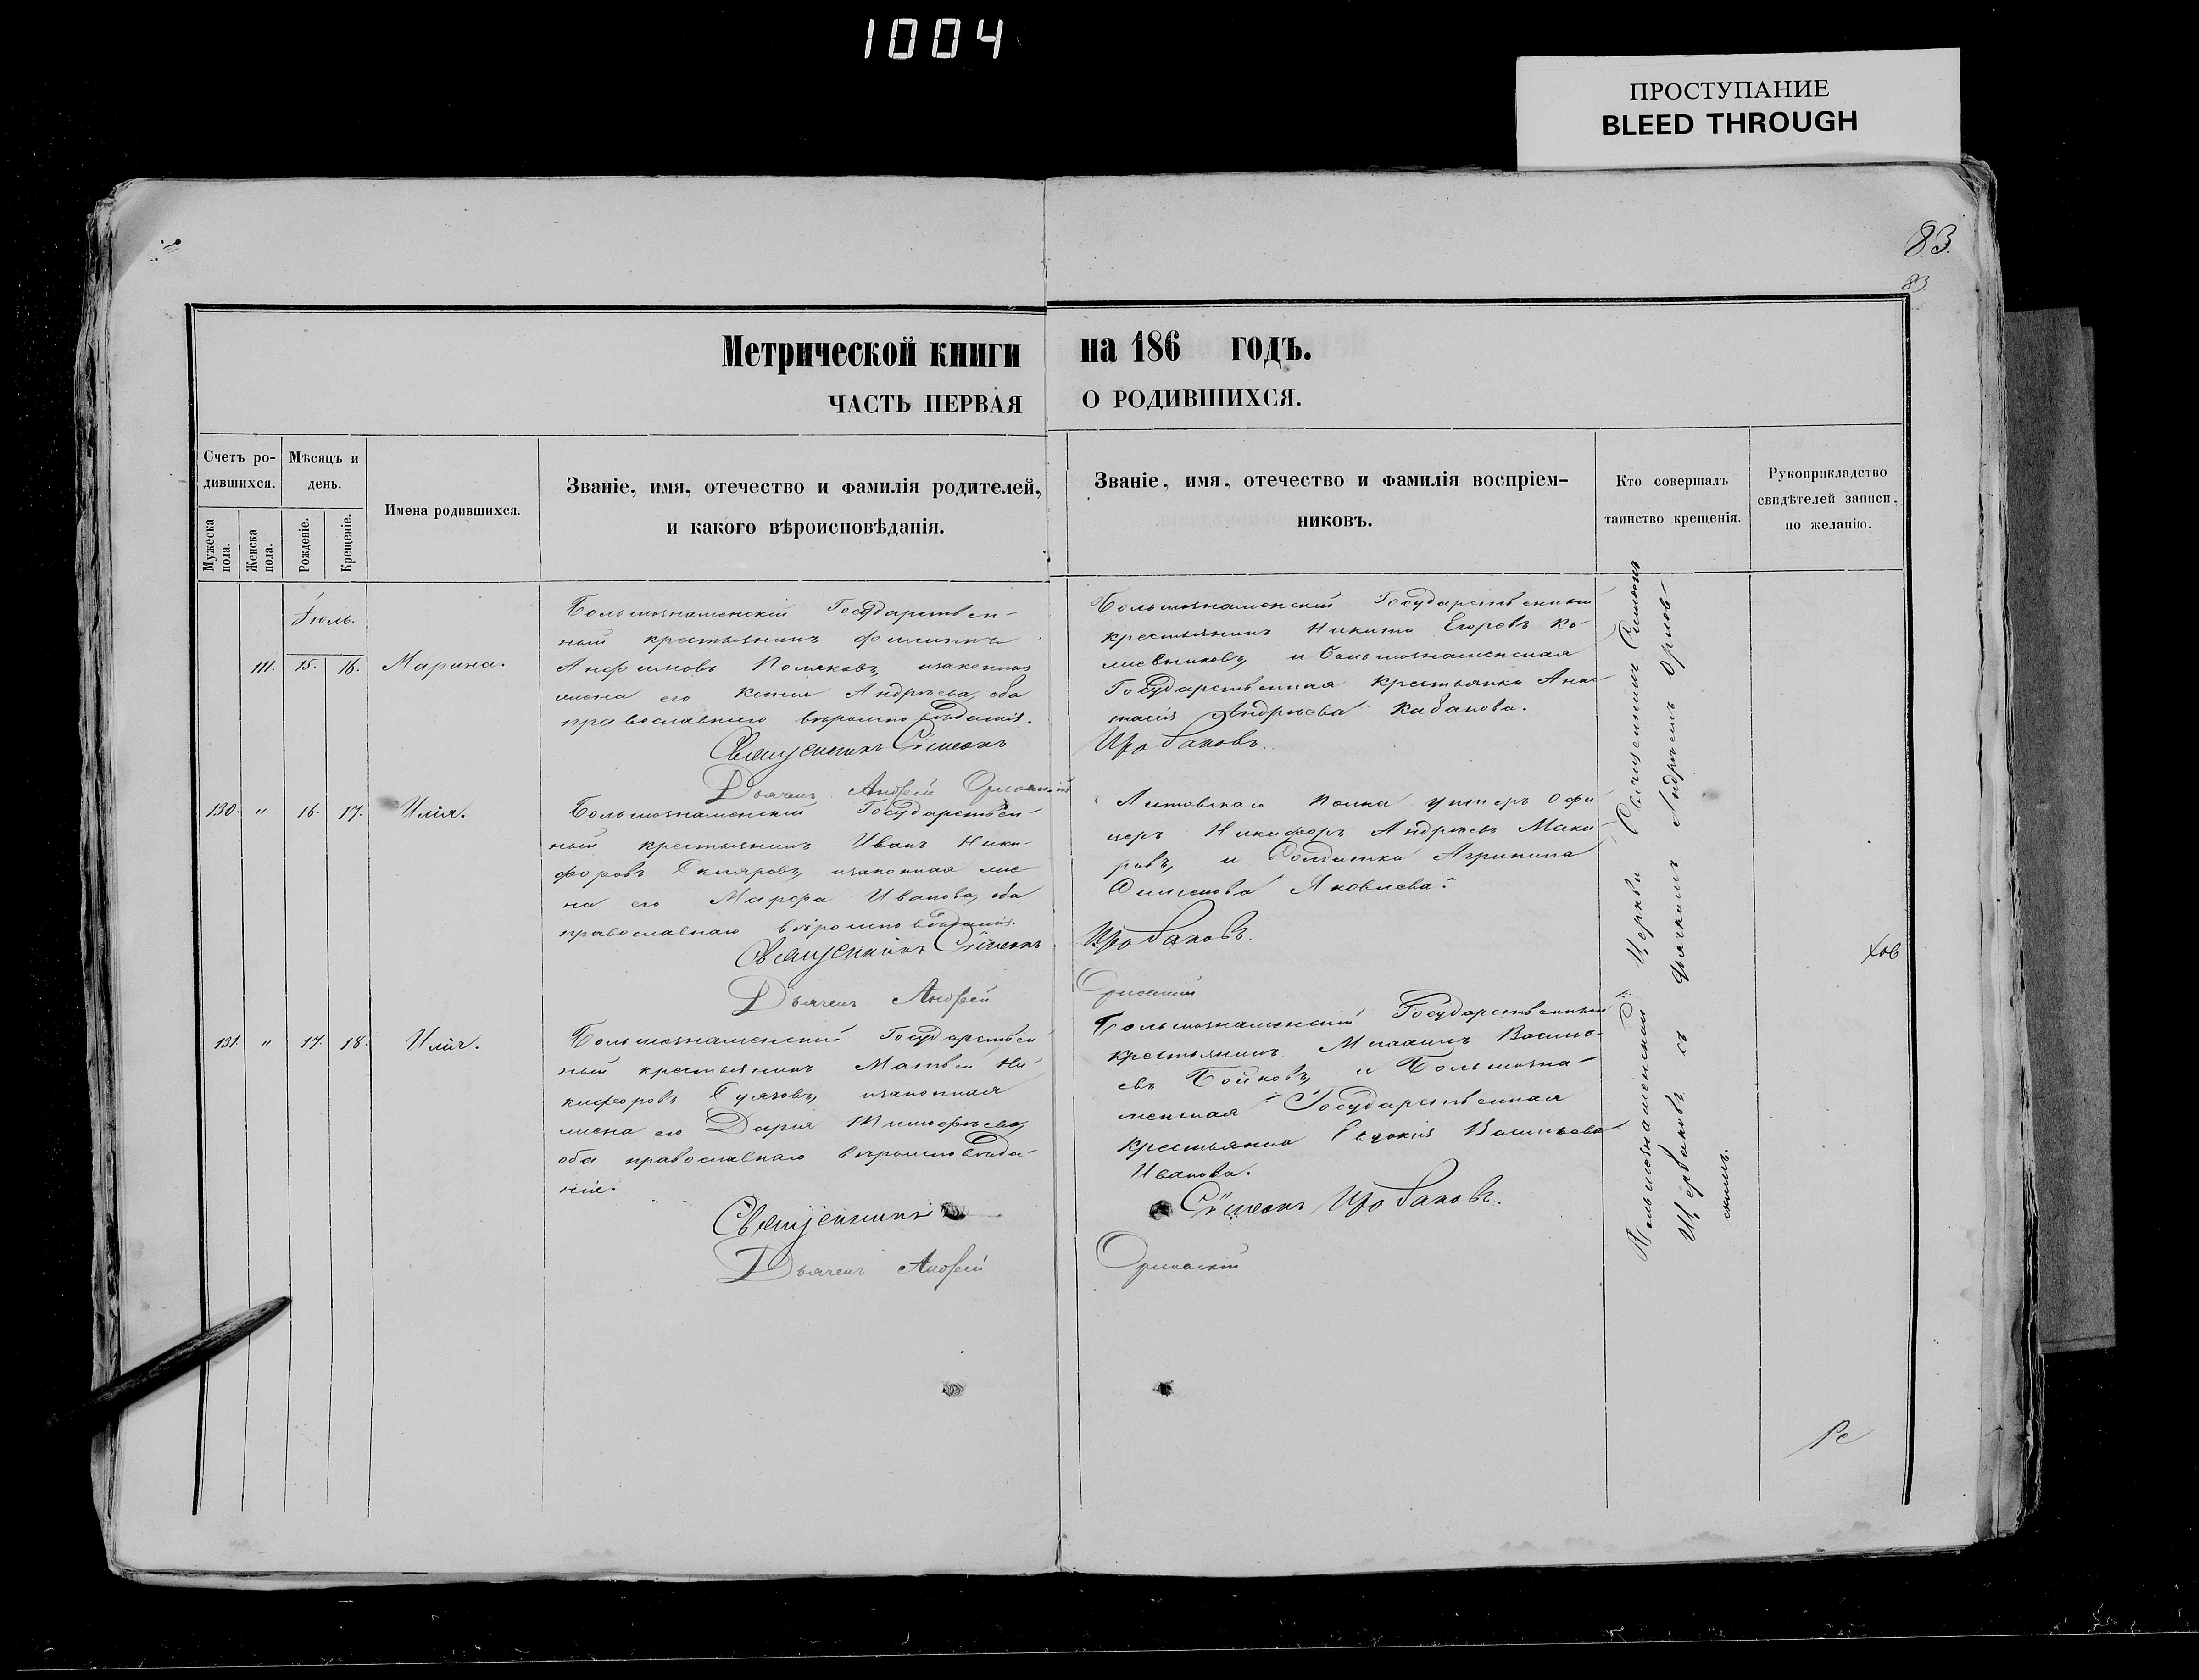 1004
ПРОСТУПАНИЕ
BLEED THROUGH
83.
83
Метрической книги на 186 годъ.
ЧАСТЬ ПЕРВАЯ О РОДИВШИХСЯ.
Счетъ ро-
дившихся.
Мужеска
пола.
Женска
пола.
Мѣсяцъ и
день.
Рожденіе.
Крещеніе.
Имена родившихся.
Званіе, имя, отечество и фамилія родителей,
и какого вѣроисповѣданія.
Званіе, имя, отечество и фамилія воспріем-
никовъ.
Кто совершалъ
таинство крещенія.
Рукоприкладство
свидѣтелей записи,
по желанію.
Іюль.
111. 15. 16. Марина.
Большознаменскій Государствен-
ный крестьянинъ Филиппъ
Анфимовъ Поляковъ, изаконная
жена его Ксенія Андрѣева, оба
православнаго вѣроисповѣданія.
Священникъ Сімеонъ
Дьячекъ Андрей Орловскій
Большознаменскій Государственный
крестьянинъ Никита Егоровъ Ко-
и Большознаменская
Государственная крестьянка Анас-
тасія Андрѣева Кабанова.
Щербаковъ.
130. " 16. 17. Илія.
Большознаменскій Государствен-
ный крестьянинъ Иванъ Ники-
форовъ изаконная же-
на его Марфа Иванова, оба
православнаго вѣроисповѣданія.
Священникъ Сімеонъ
Дьячекъ Андрей
Литовскаго полка унтеръ Офи-
церъ Никифоръ Андреевъ Мака-
ровъ, и Солдатка Агрипина
Яковлева.
Щербаковъ.
Орловскій
131. " 17. 18. Илія.
Большознаменскій Государствен
ный крестьянинъ Матвей Ни-
кифоровъ изаконная
жена его Дарія Тимофѣева,
оба православнаго вѣроисповѣда-
нія.
Священникъ
Дьячекъ Андрей
Большознаменскій Государственный
крестьянинъ Михаилъ Василь-
евъ Бойковъ, и Большозна-
менская Государственная
крестьянка Евдокія Васильева
Иванова.
Сімеонъ Щербаковъ.
Орловскій
Большознаменской Церкви Священникъ Симеонъ
Щербаковъ съ Дьячкомъ Андреемъ Орлов-
скимъ.